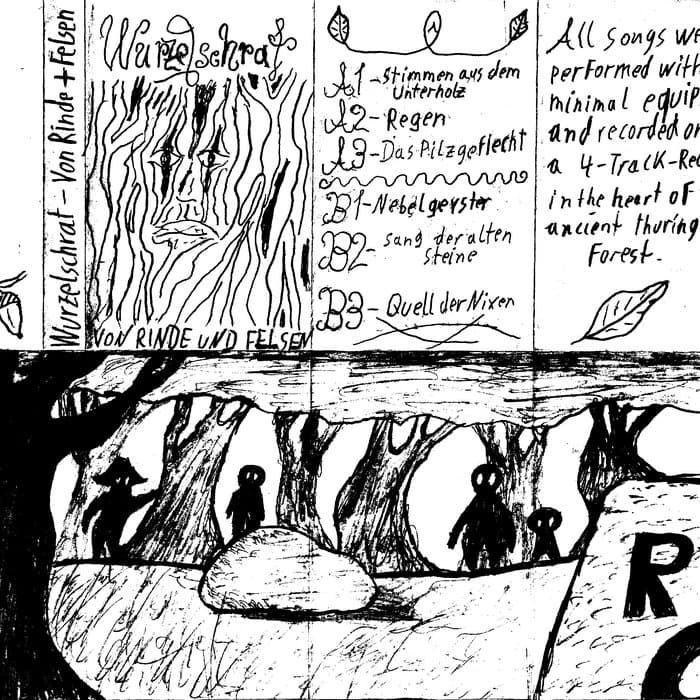 Wurzelschrat – Von Rinde + Felsen
Wurzelschrat
VON RINDE UND FELSEN
A1 – Stimmen aus dem
Unterholz
A2 – Regen
A3 – Das Pilzgeflecht
B1 – Nebelgeyster
B2 – Sang der alten
Steine
B3 – Quell der Nixen
All songs we
performed with
minimal equip
and recorded on
a 4-Track-Rec
in the heart of
ancient thuring
Forest.
R